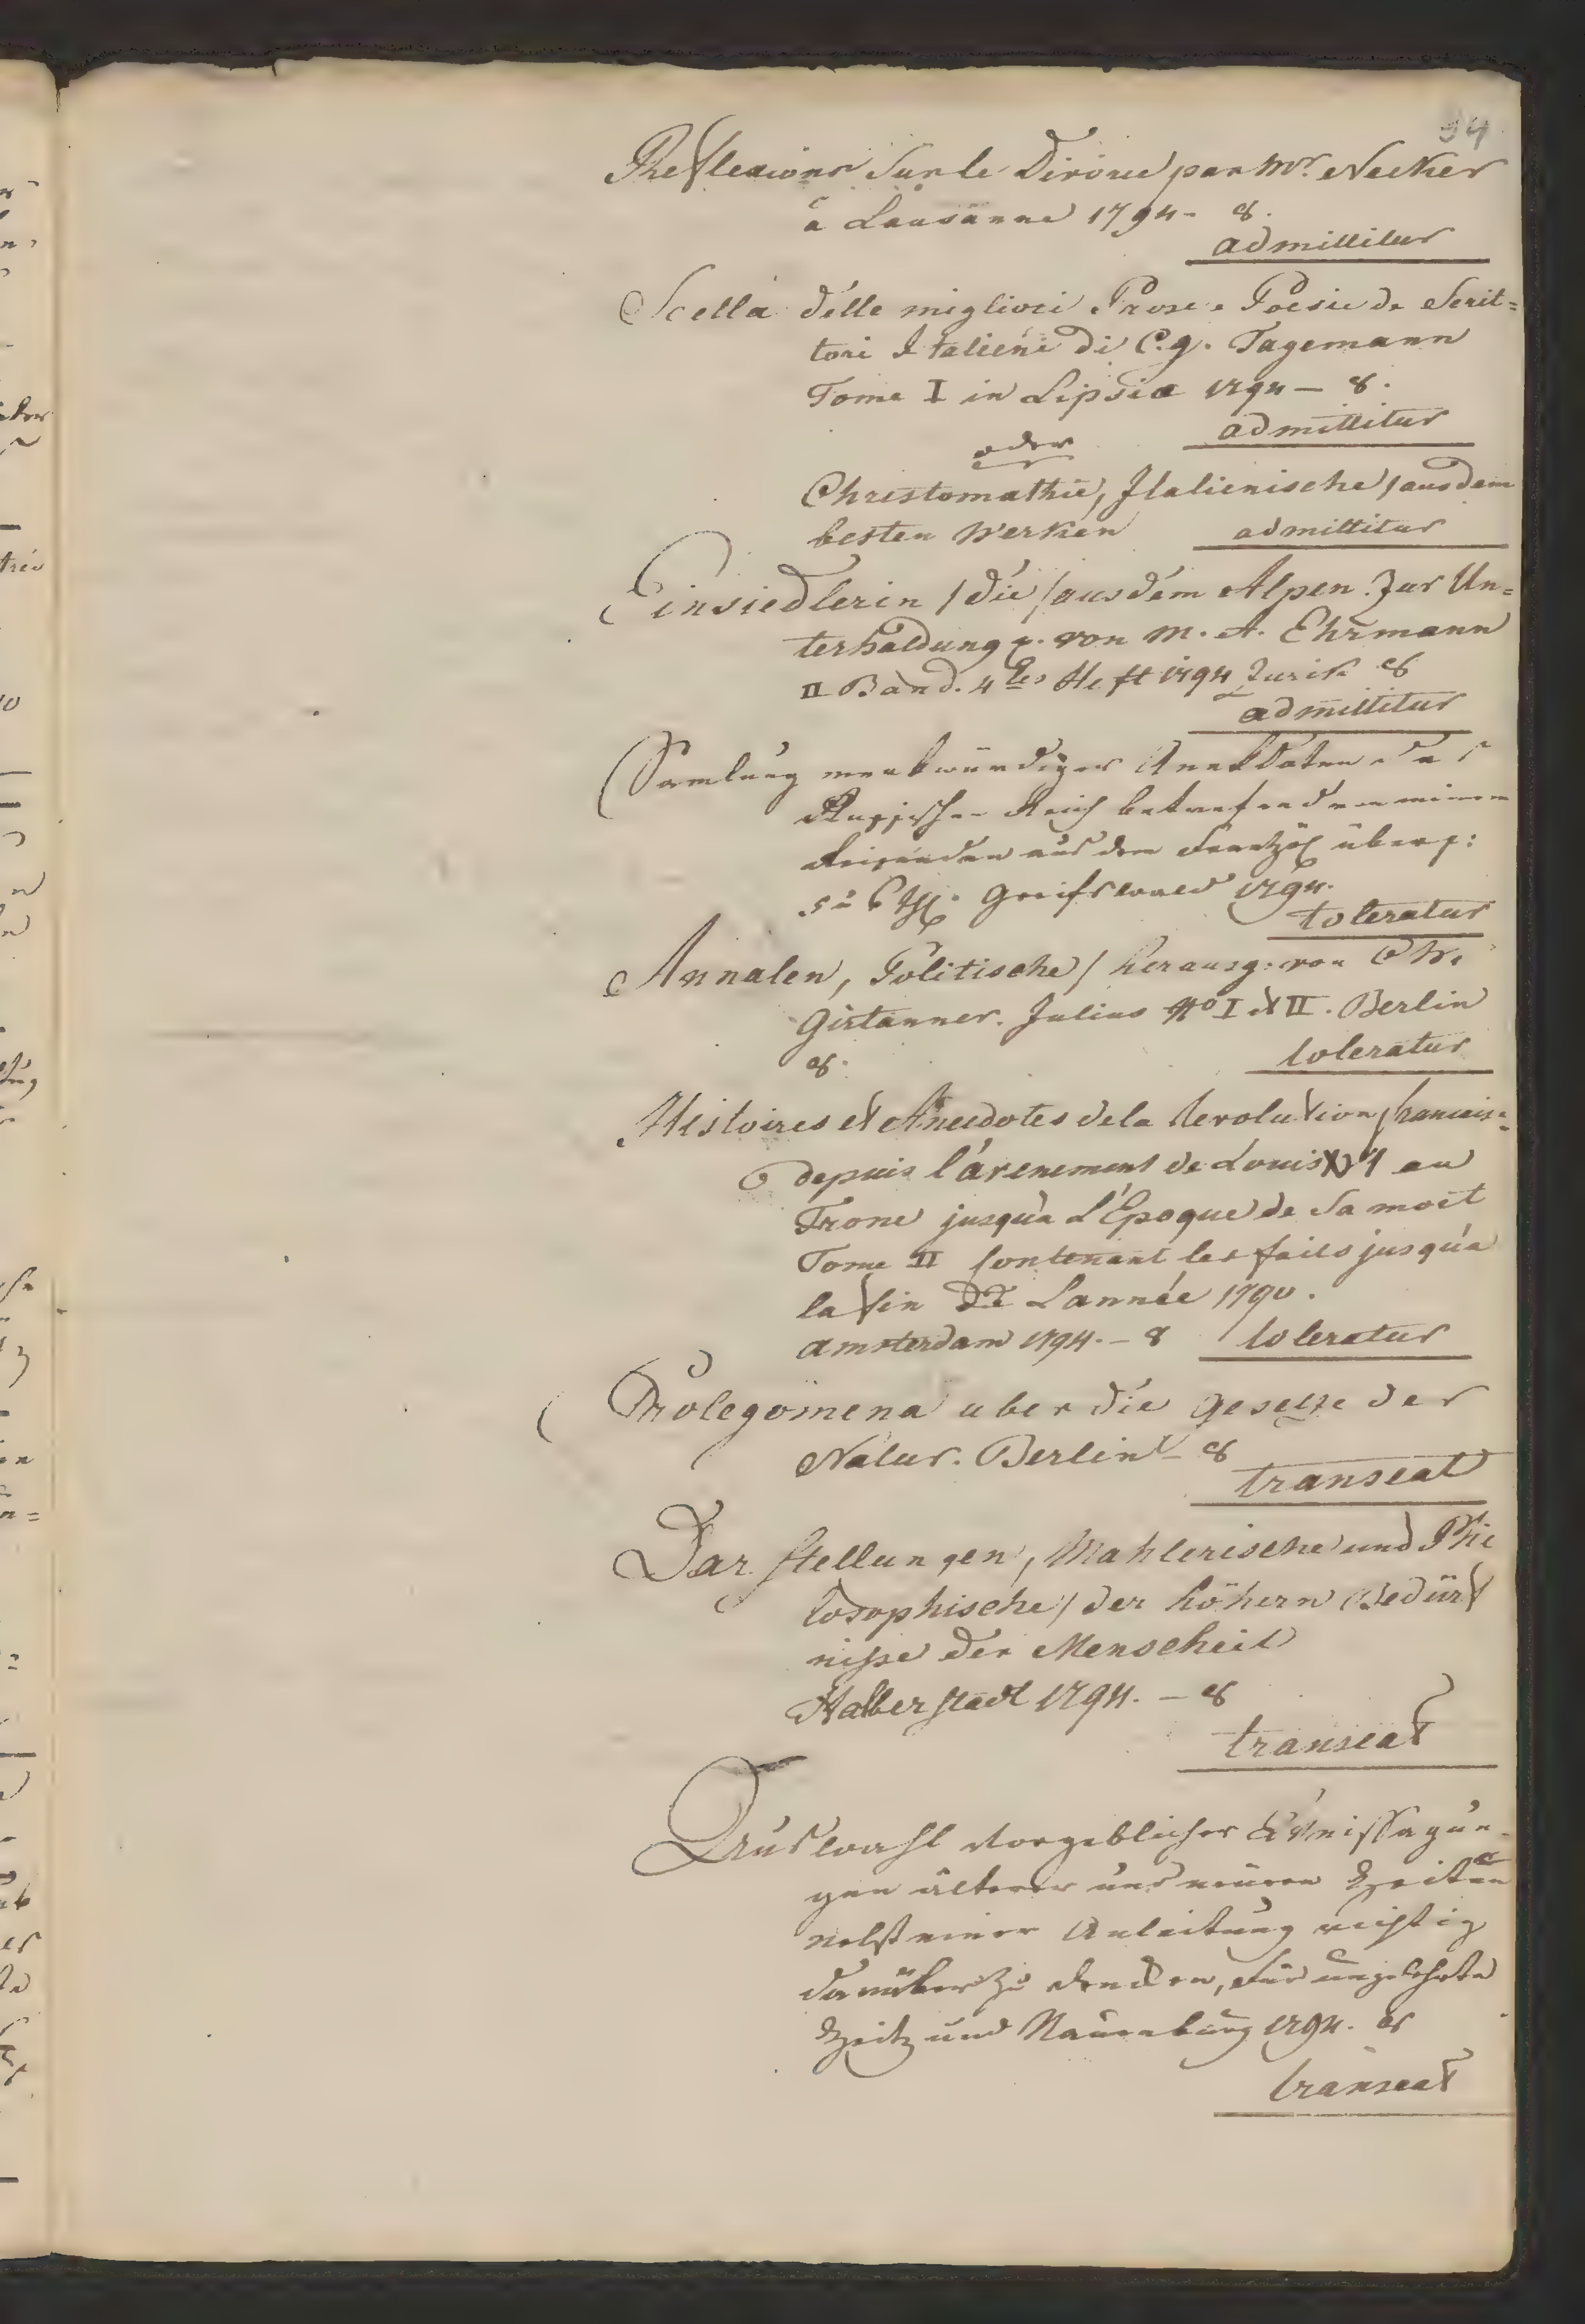 94
Reflexions Sur le Divorce par Mr. Necker
a Lausanne 1794 - 8.
admittitur
Scella delle migliori Prose e Poesie de Scrit=
tori Italieni di C. g. Tagemann
Tome I in Lipsia 1794 — 8.
admittitur
oder
Chrestomathie, Italienische / aus dem
besten Werken admittitur
Einsiedlerin / die / aus dem Alpen. Zur Un=
terhaldung p. von M. A. Ehrmann
II Band. 4tes Heft 1794 Zurik 8
admittitur
Samlung merkwürdiger Anekdoten das
Russische Reich betrefend von einem
Reisenden aus dem Französ übers:
Greifswald 1794.
toleratur
Annalen, Politische / herausg: von Chr.
Girtanner. Julius No I et II. Berlin
8.
toleratur
Histoires et Anecdotes de la Revolution francais=
e depuis l'avenement de Louis XVI au
Trone jusqu'a L'Epoque de Sa mort
Tome II Contenant les faits jusqu'a
la fin de L'année 1790.
amsterdam 1794. — 8 toleratur
Prolegomena uber die Gesetze der
Natur. Berlin - 8
transeat
Darstellungen, Mahlerische und Phi
losophische / der höhern Bedürf
nisse der Menscheit
Halberstadt 1794. — 8
transeat
Auswahl vorgeblicher Weissagun-
gen älterer und neuern Zeiten
nebst einer Anleitung richtig
darüber zu denken, für ungelehrte
Zeitz und Naumburg 1794. 8
transeat